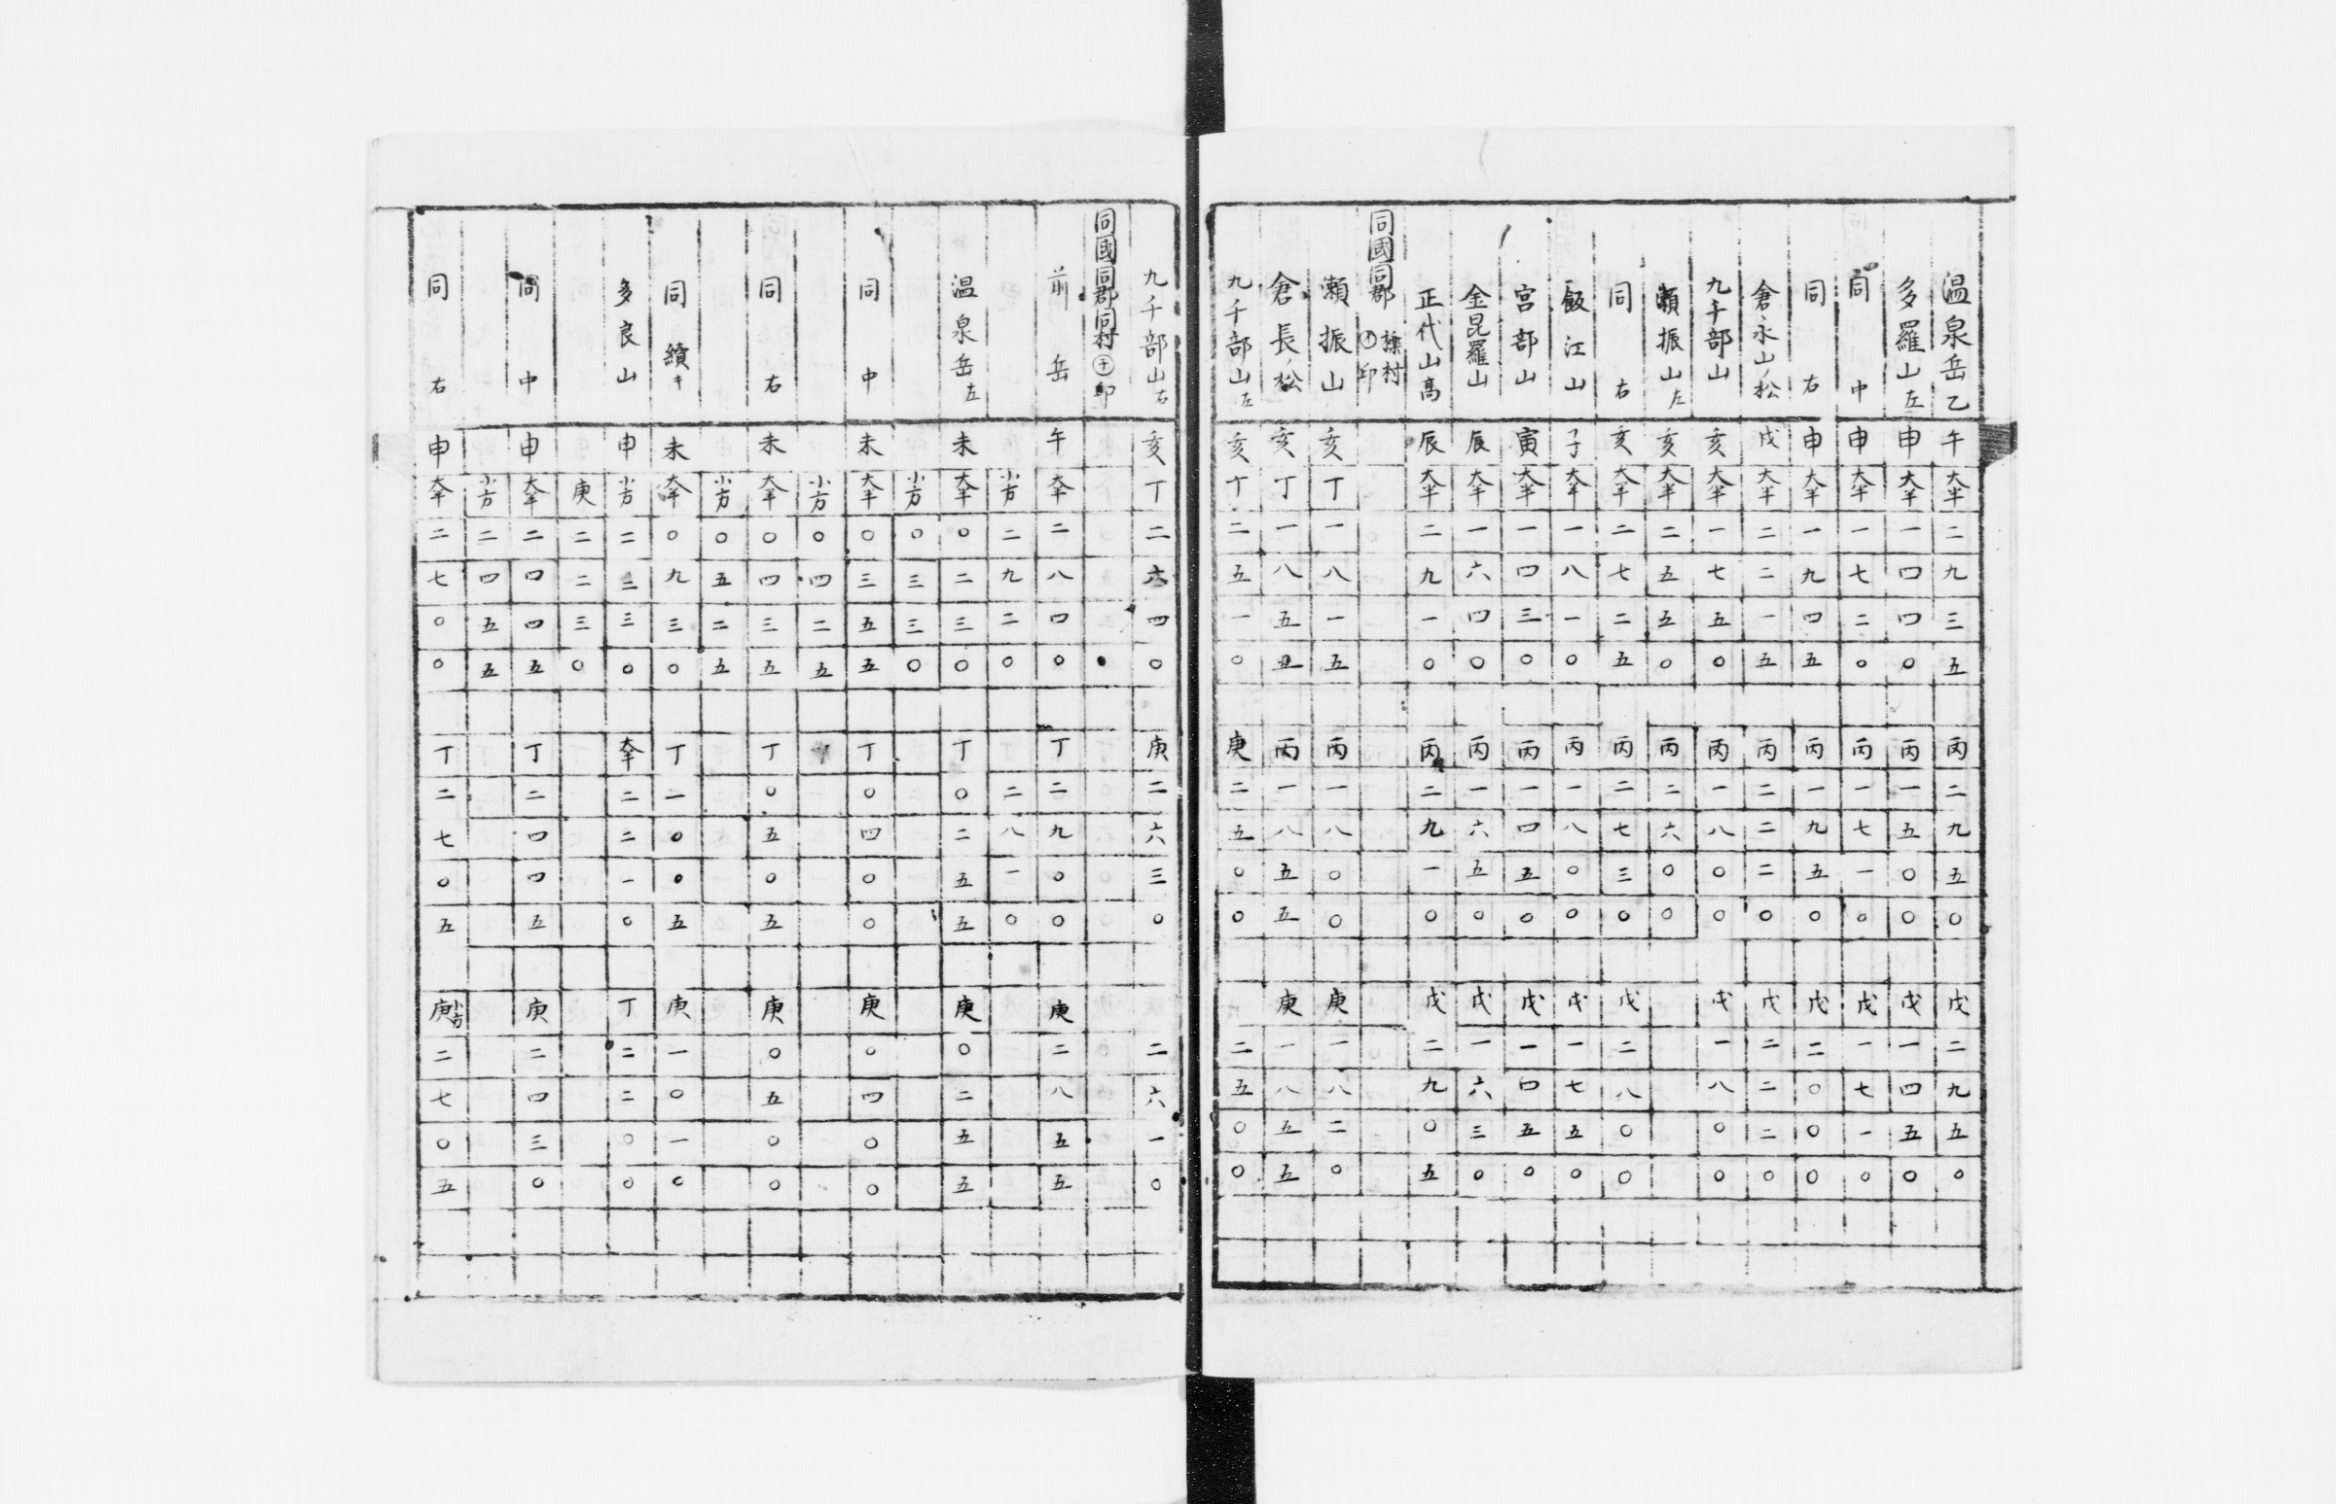 温泉岳乙 午 大半 二九三五 丙 二九五〇 戊 二九五〇
多羅山左 申 大半 一四四〇 丙 一五〇〇 戊 一四五〇
同中 申 大半 一七二〇 丙 一七一〇 戊 一七一〇
同右 申 大半 一九四五 丙 一九五〇 戊 二〇〇〇
倉永山ノ松 戌 大半 二二一五 丙 二二二〇 戊 二二二〇
九千部山 亥 大半 一七五〇 丙 一八〇〇 戊 一八〇〇
瀬振山左 亥 大半 二五五〇 丙 二六〇〇
同右 亥 大半 二七二五 丙 二七三〇 戊 二八〇〇
飯江山 子 大半 一八一〇 丙 一八〇〇 戊 一七五〇
宮部山 寅 大半 一四三〇 丙 一四五〇 戊 一四五〇
金昆羅山 辰 大半 一六四〇 丙 一六五〇 戊 一六三〇
正代山高 辰 大半 二九一〇 丙 二九一〇 戊 二九〇五
同國同郡 村 印
瀬振山 亥 丁 一八一五 丙 一八〇〇 庚 一八二〇
倉長ノ松 亥 丁 一八五五 丙 一八五五 庚 一八五五
九千部山左 亥 丁 二五一〇 庚 二五〇〇 二五〇〇
九千部山右 亥 丁 二六四〇 庚 二六三〇 二六一〇
同國同郡同村 ㊉印
前岳 午 大半 二八四〇 丁 二九〇〇 庚 二八五五
小方 二九二〇 二八一〇
温泉岳左 未 大半 〇二三〇 丁 〇二五五 庚 〇二五五
小方 〇三三〇
同中 未 大半 〇三五五 丁 〇四〇〇 庚 〇四〇〇
小方 〇四二五
同右 未 大半 〇四三五 丁 〇五〇五 庚 〇五〇〇
小方 〇五二五
同續キ 未 大半 〇九三〇 丁 一〇〇五 庚 一〇一〇
多良山 申 小方 二二三〇 大半 二二一〇 丁 二二〇〇
庚 二二三〇
同中 申 大半 二四四五 丁 二四四五 庚 二四三〇
小方 二四五五
同右 申 大半 二七〇〇 丁 二七〇五 庚小方 二七〇五